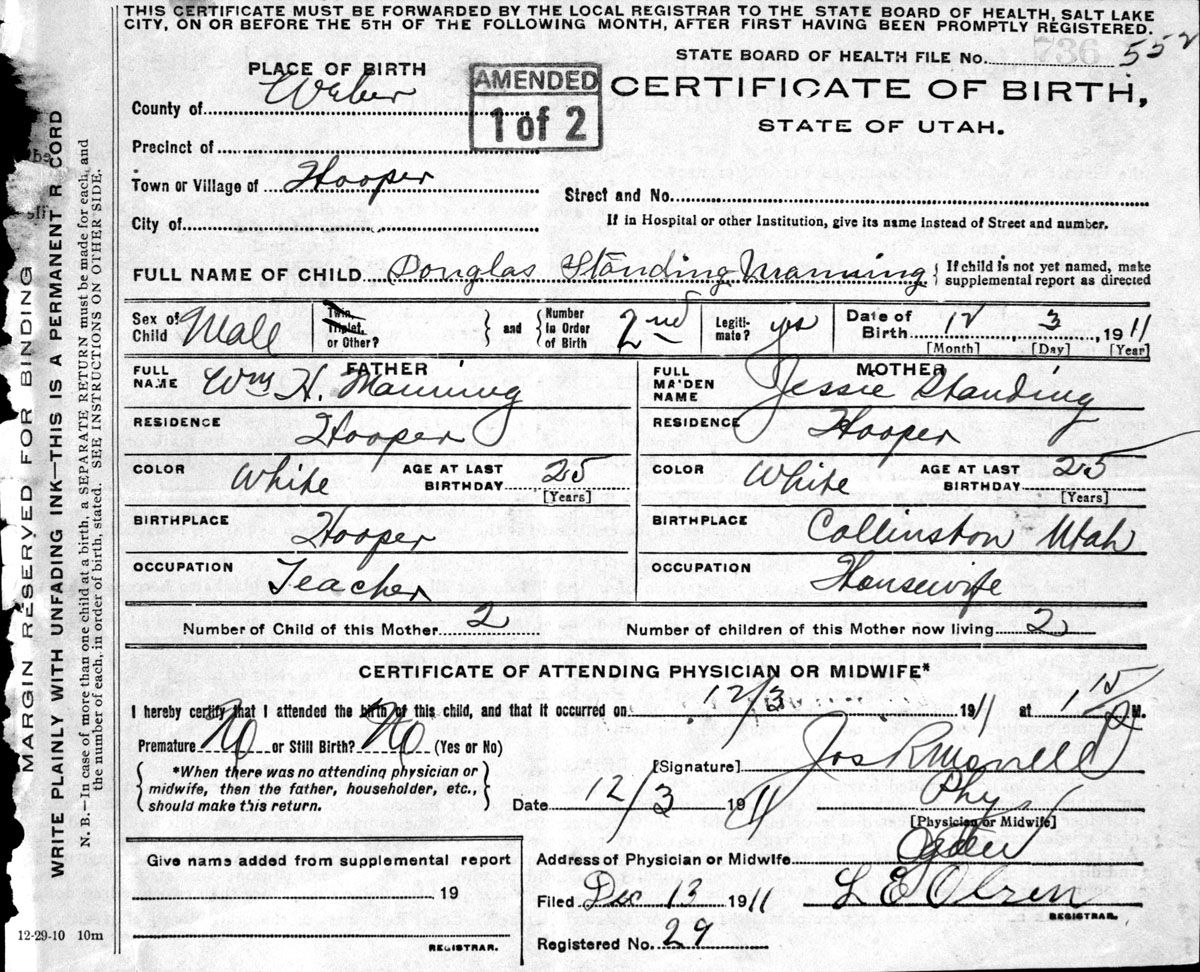 THIS CERTIFICATE MUST BE FORWARDED BY THE LOCAL REGISTRAR TO THE STATE BOARD OF HEALTH, SALT LAKE
CITY, ON OR BEFORE THE 5TH OF THE FOLLOWING MONTH, AFTER FIRST HAVING BEEN PROMPTLY REGISTERED.
736
STATE BOARD OF HEALTH FILE No. 552
PLACE OF BIRTH
AMENDED
1 of 2
CERTIFICATE OF BIRTH,
STATE OF UTAH.
County of Weber
Precinct of
Town or Village of Hooper
Street and No.
City of
If in Hospital or other Institution, give its name instead of Street and number.
FULL NAME OF CHILD Douglas Standing Manning { If child is not yet named, make supplemental report as directed
Sex of Child Male
Twin, Triplet, or Other? } and { Number In Order of Birth 2nd
Legiti-mate? yes
Date of Birth 12 3, 1911
[Month] [Day] [Year]
FATHER
FULL NAME Wm H. Manning
RESIDENCE Hooper
COLOR White AGE AT LAST BIRTHDAY 25
[Years]
BIRTHPLACE Hooper
OCCUPATION Teacher
MOTHER
FULL MAIDEN NAME Jessie Standing
RESIDENCE Hooper
COLOR White AGE AT LAST BIRTHDAY 25
[Years]
BIRTHPLACE Collinston Utah
OCCUPATION Housewife
Number of Child of this Mother 2
Number of children of this Mother now living 2
CERTIFICATE OF ATTENDING PHYSICIAN OR MIDWIFE*
I hereby certify that I attended the birth of this child, and that it occurred on 12/3 1911 at M.
Premature No or Still Birth? No (Yes or No)
{ *When there was no attending physician or midwife, then the father, householder, etc., should make this return. }
[Signature] Jos R Morrell
Date 12/3 1911
Phy
[Physician or Midwife]
Give name added from supplemental report
19
REGISTRAR.
Address of Physician or Midwife Ogden
Filed Dec 13 1911 L E Olsen
REGISTRAR.
Registered No. 29
12-29-10 10m
MARGIN RESERVED FOR BINDING
WRITE PLAINLY WITH UNFADING INK—THIS IS A PERMANENT R CORD
N. B.—In case of more than one child at a birth, a SEPARATE RETURN must be made for each, and
the number of each, in order of birth, stated. SEE INSTRUCTIONS ON OTHER SIDE.